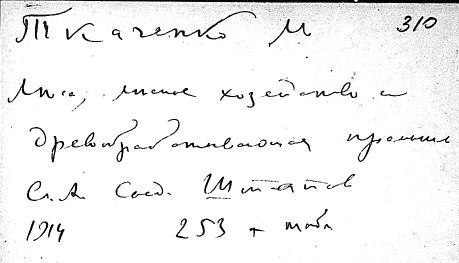 Ткаченко М 310
Леса, лесное хозяйство и
древообрабатывающая промышл
С. А. Соед. Штатов
1914 253 + табл